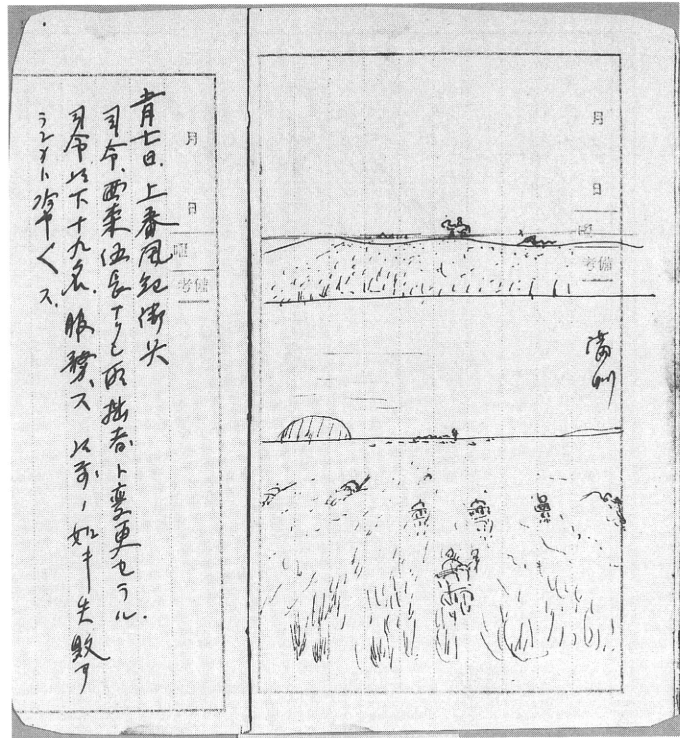 月
日
曜
備考
満州
月
日
曜
備考
月七日、上番風紀衛兵
司令、西東伍長ナリシ所拙者ト変更セラル.
司令以下十九名、服務ス 以前ノ如キ失敗ヲ
ス.